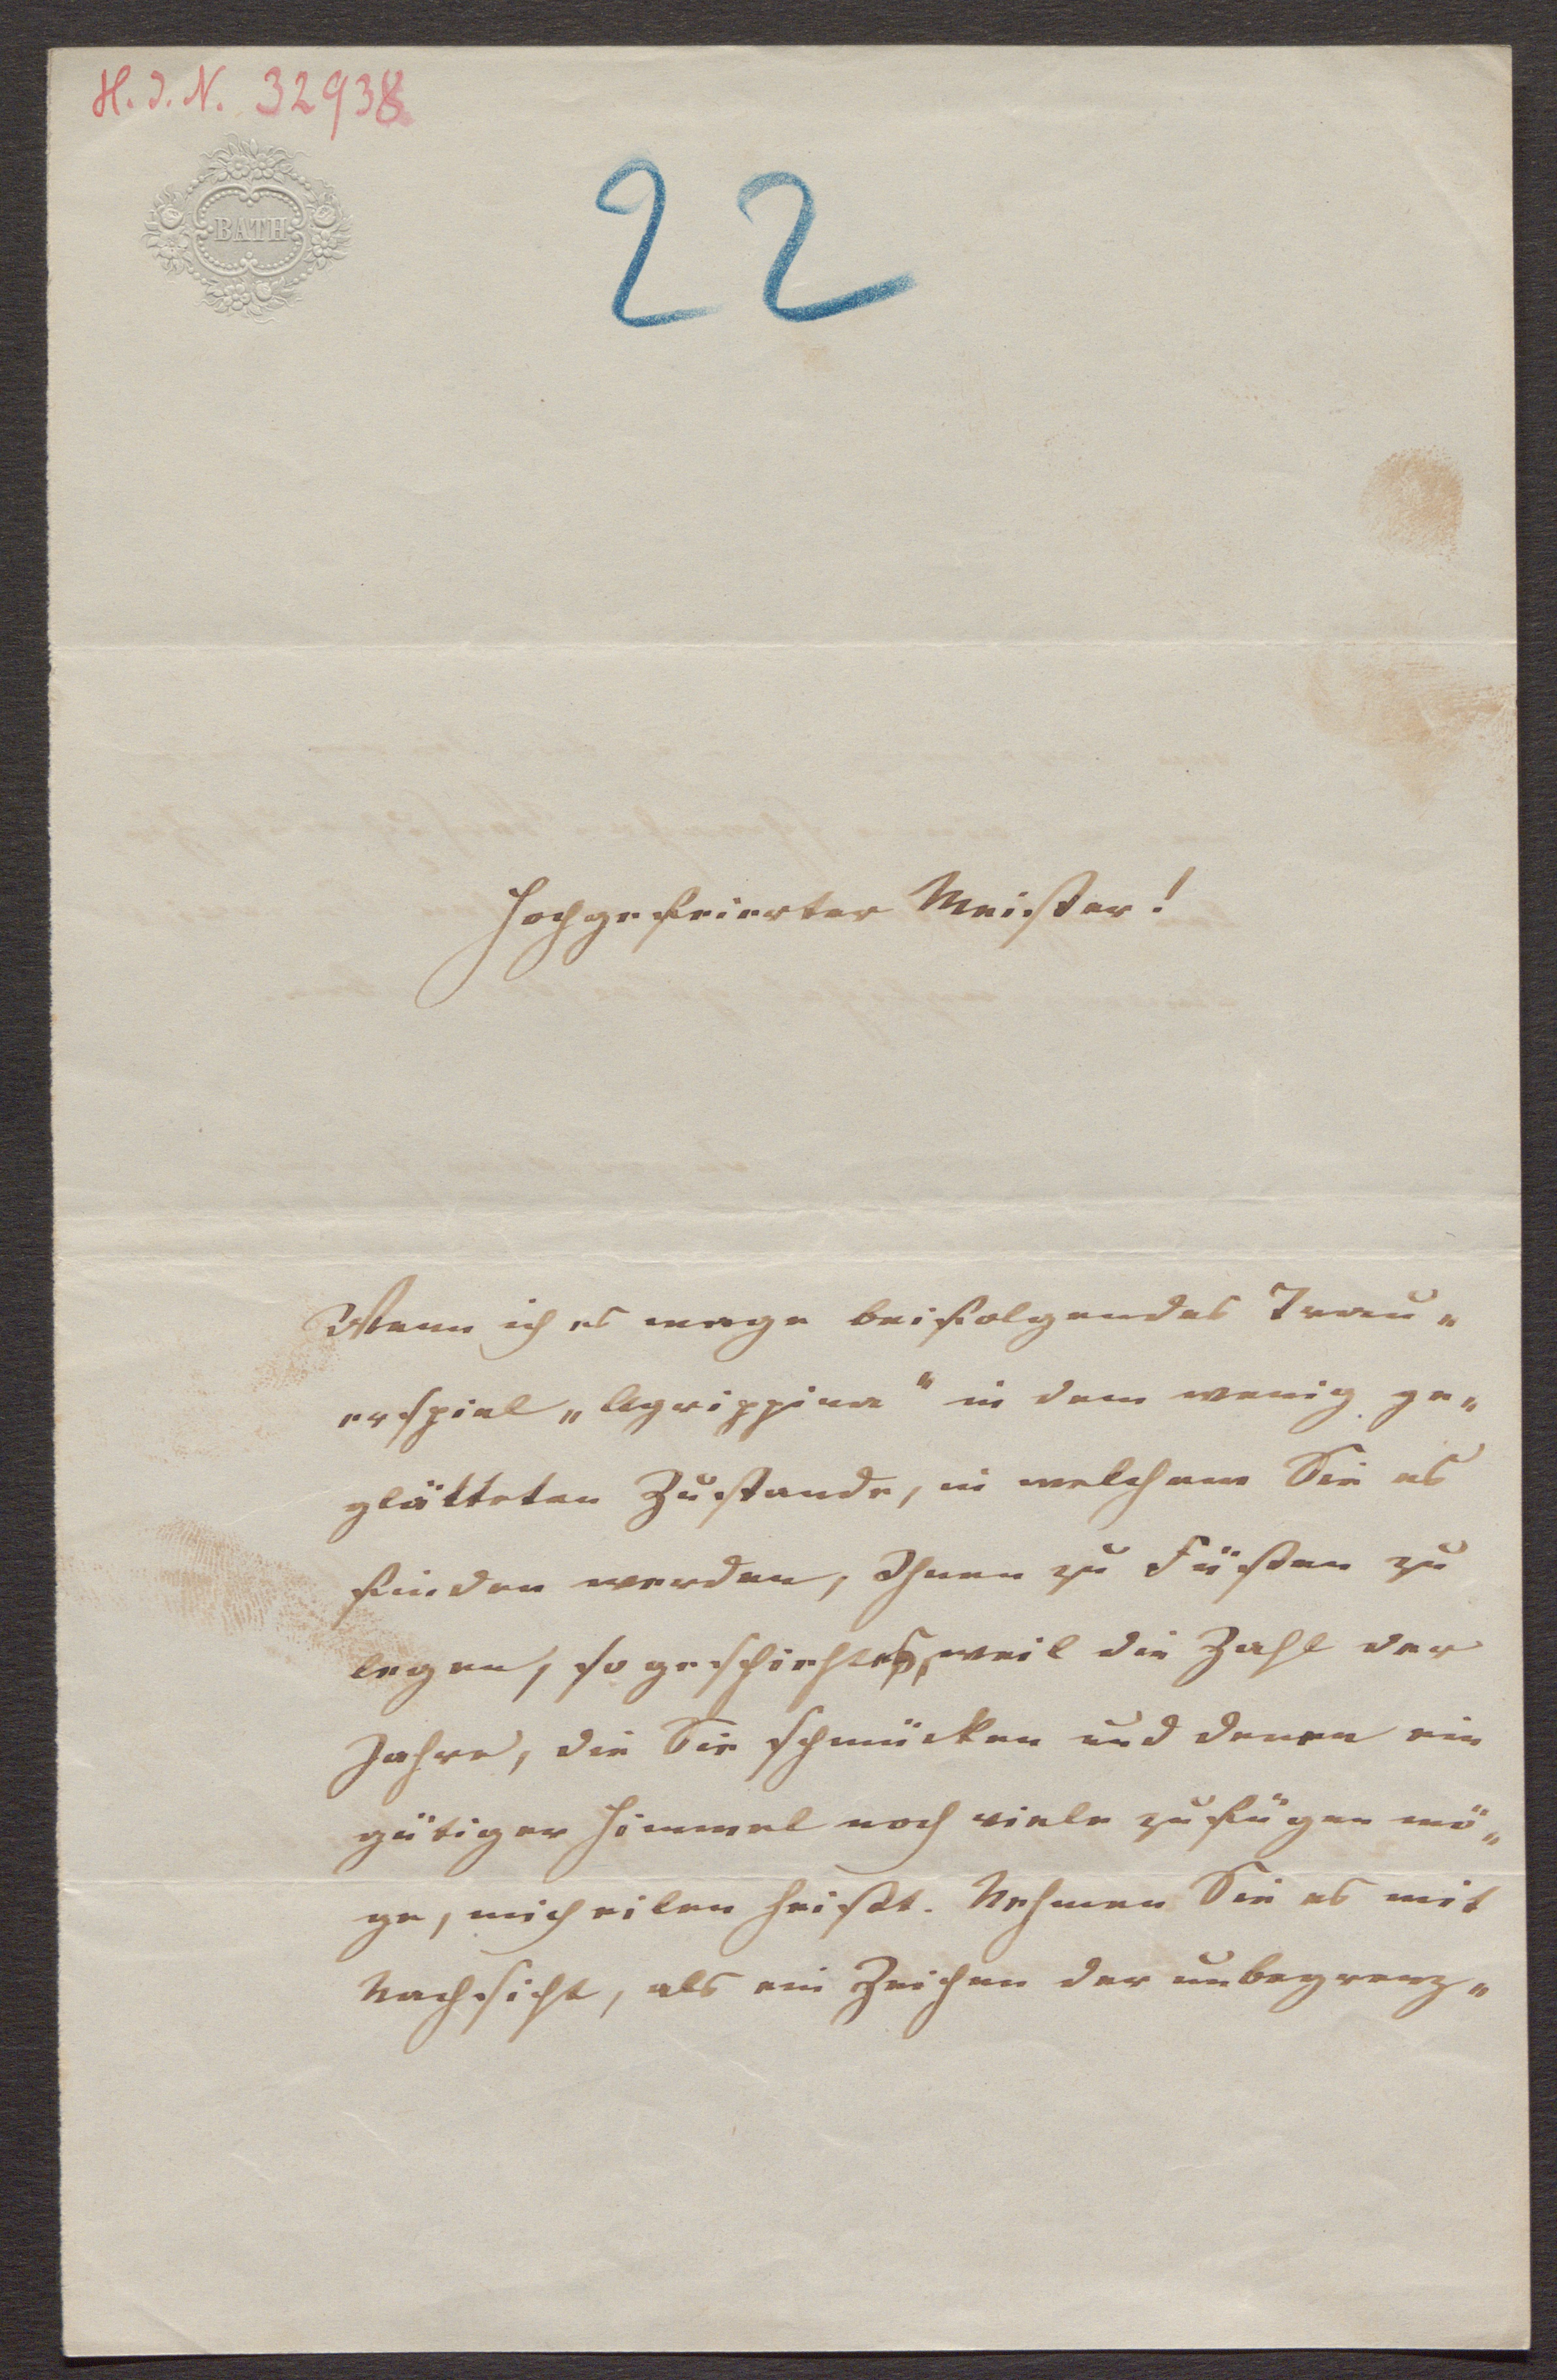 H. I. N. 32938
BATH
22
Hochgefeierter Meister!
Wenn ich es wage beifolgendes Trau„
erspiel „Agrippina“ in dem wenig ge„
glätteten Zustande, in welchem Sie es
finden werden, Ihnen zu Füßen zu
legen, so geschieht es, weil die Zahl der
Jahre, die Sie schmücken und denen ein
gütiger Himmel noch viele zufügen mö„
ge, mich eilen heißt. Nehmen Sie es mit
Nachsicht, als ein Zeichen der unbegrenz„